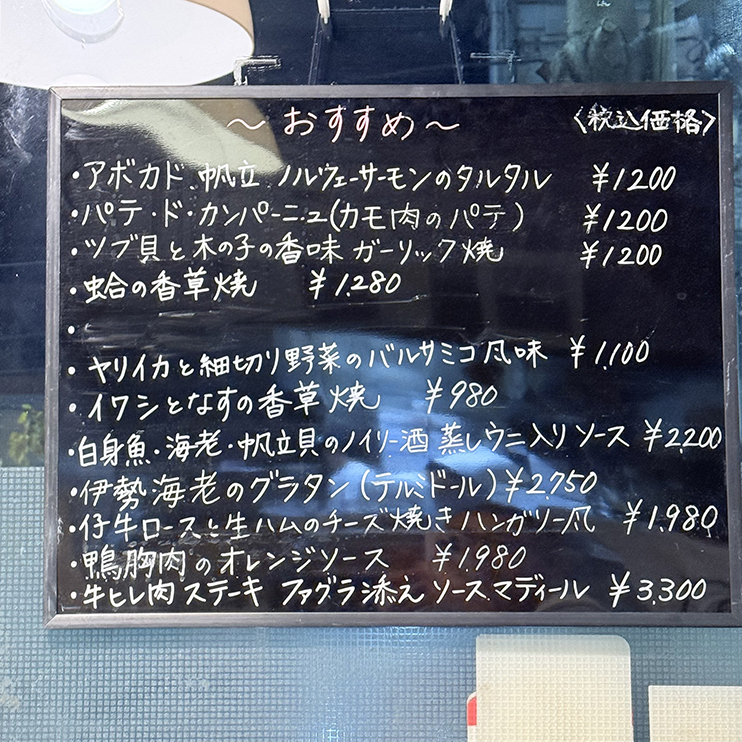 ～おすすめ～ 〈税込価格〉
・アボカド、帆立、ノルウェーサーモンのタルタル ￥1200
・パテ・ド・カンパーニュ(カモ肉のパテ) ￥1200
・ツブ貝と木の子の香味ガーリック焼 ￥1200
・蛤の香草焼 ￥1.280
・
・ヤリイカと細切り野菜のバルサミコ風味 ￥1,100
・イワシとなすの香草焼 ￥980
・白身魚・海老・帆立貝のノイリー酒蒸しウニ入りソース ￥2,200
・伊勢海老のグラタン(テルミドール) ￥2.750
・仔牛ロースと生ハムのチーズ焼きハンガリー風 ￥1.980
・鴨胸肉のオレンジソース ￥1.980
・牛ヒレ肉ステーキ フォアグラ添え ソースマディール ￥3,300